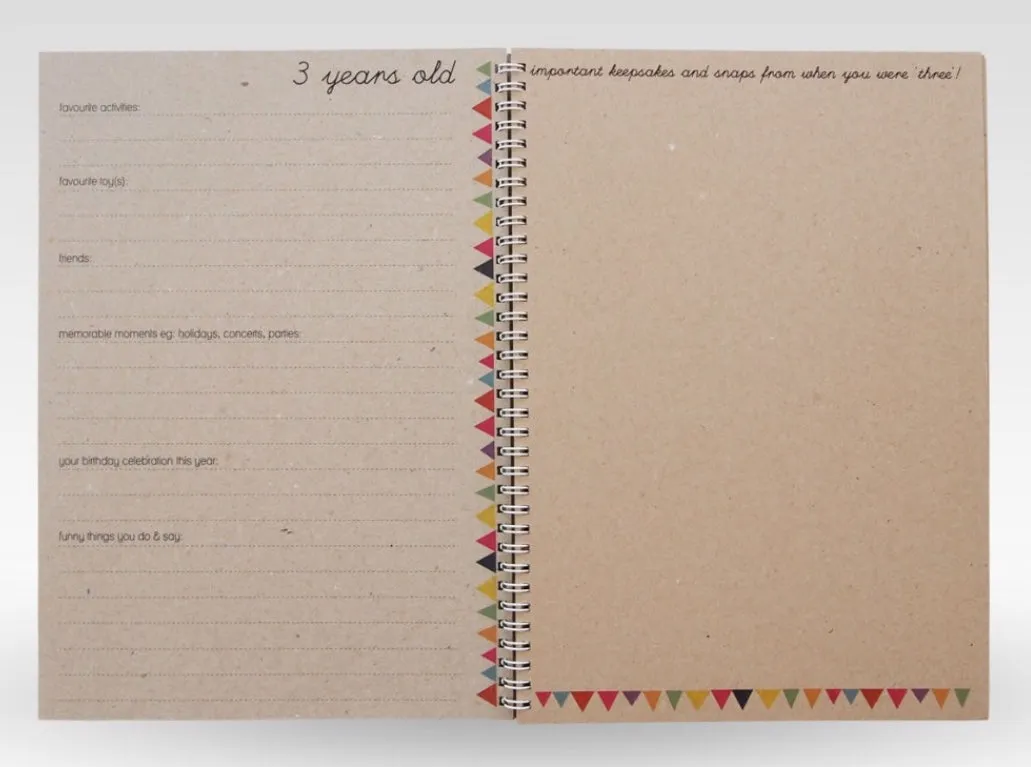 3 years old
favourite activities:
favourite toy(s):
friends:
memorable moments eg: holidays, concerts, parties:
your birthday celebration this year:
funny things you do & say:
important keepsakes and snaps from when you were 'three'!